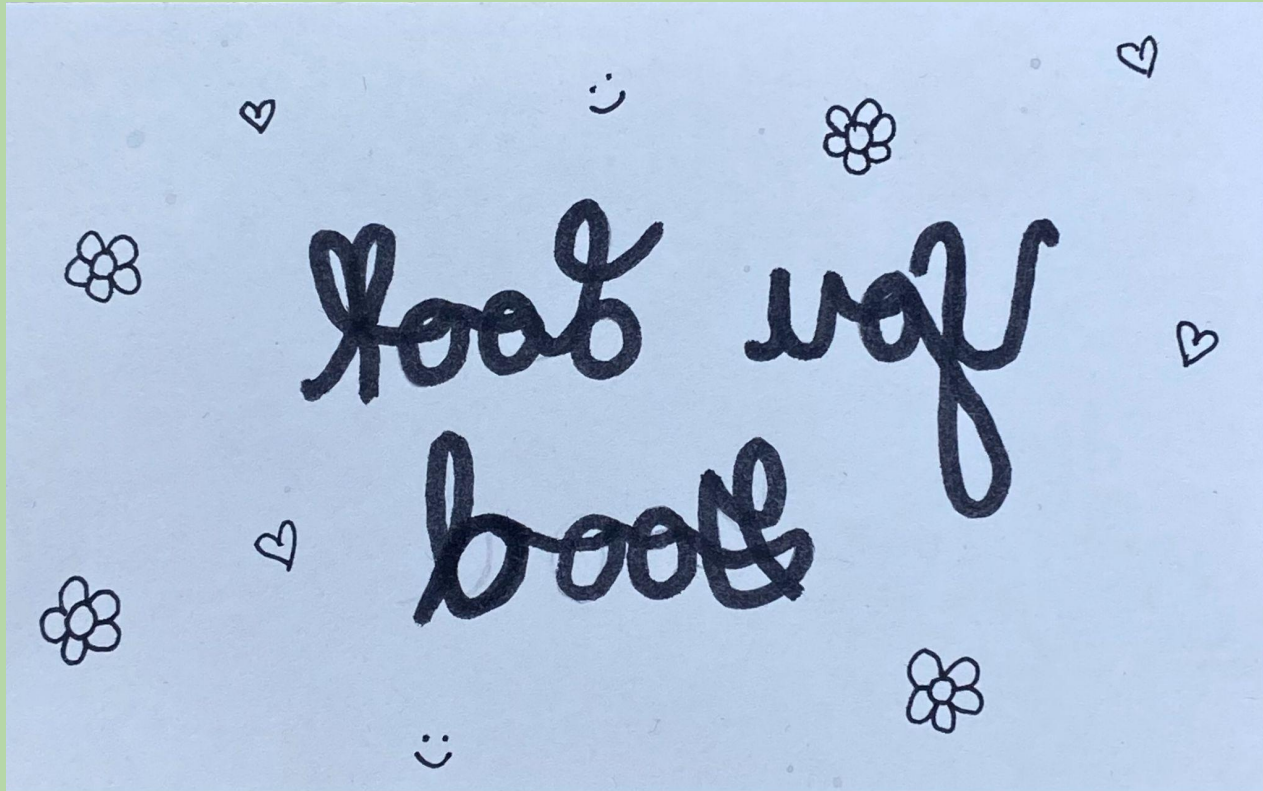 You Look
Good